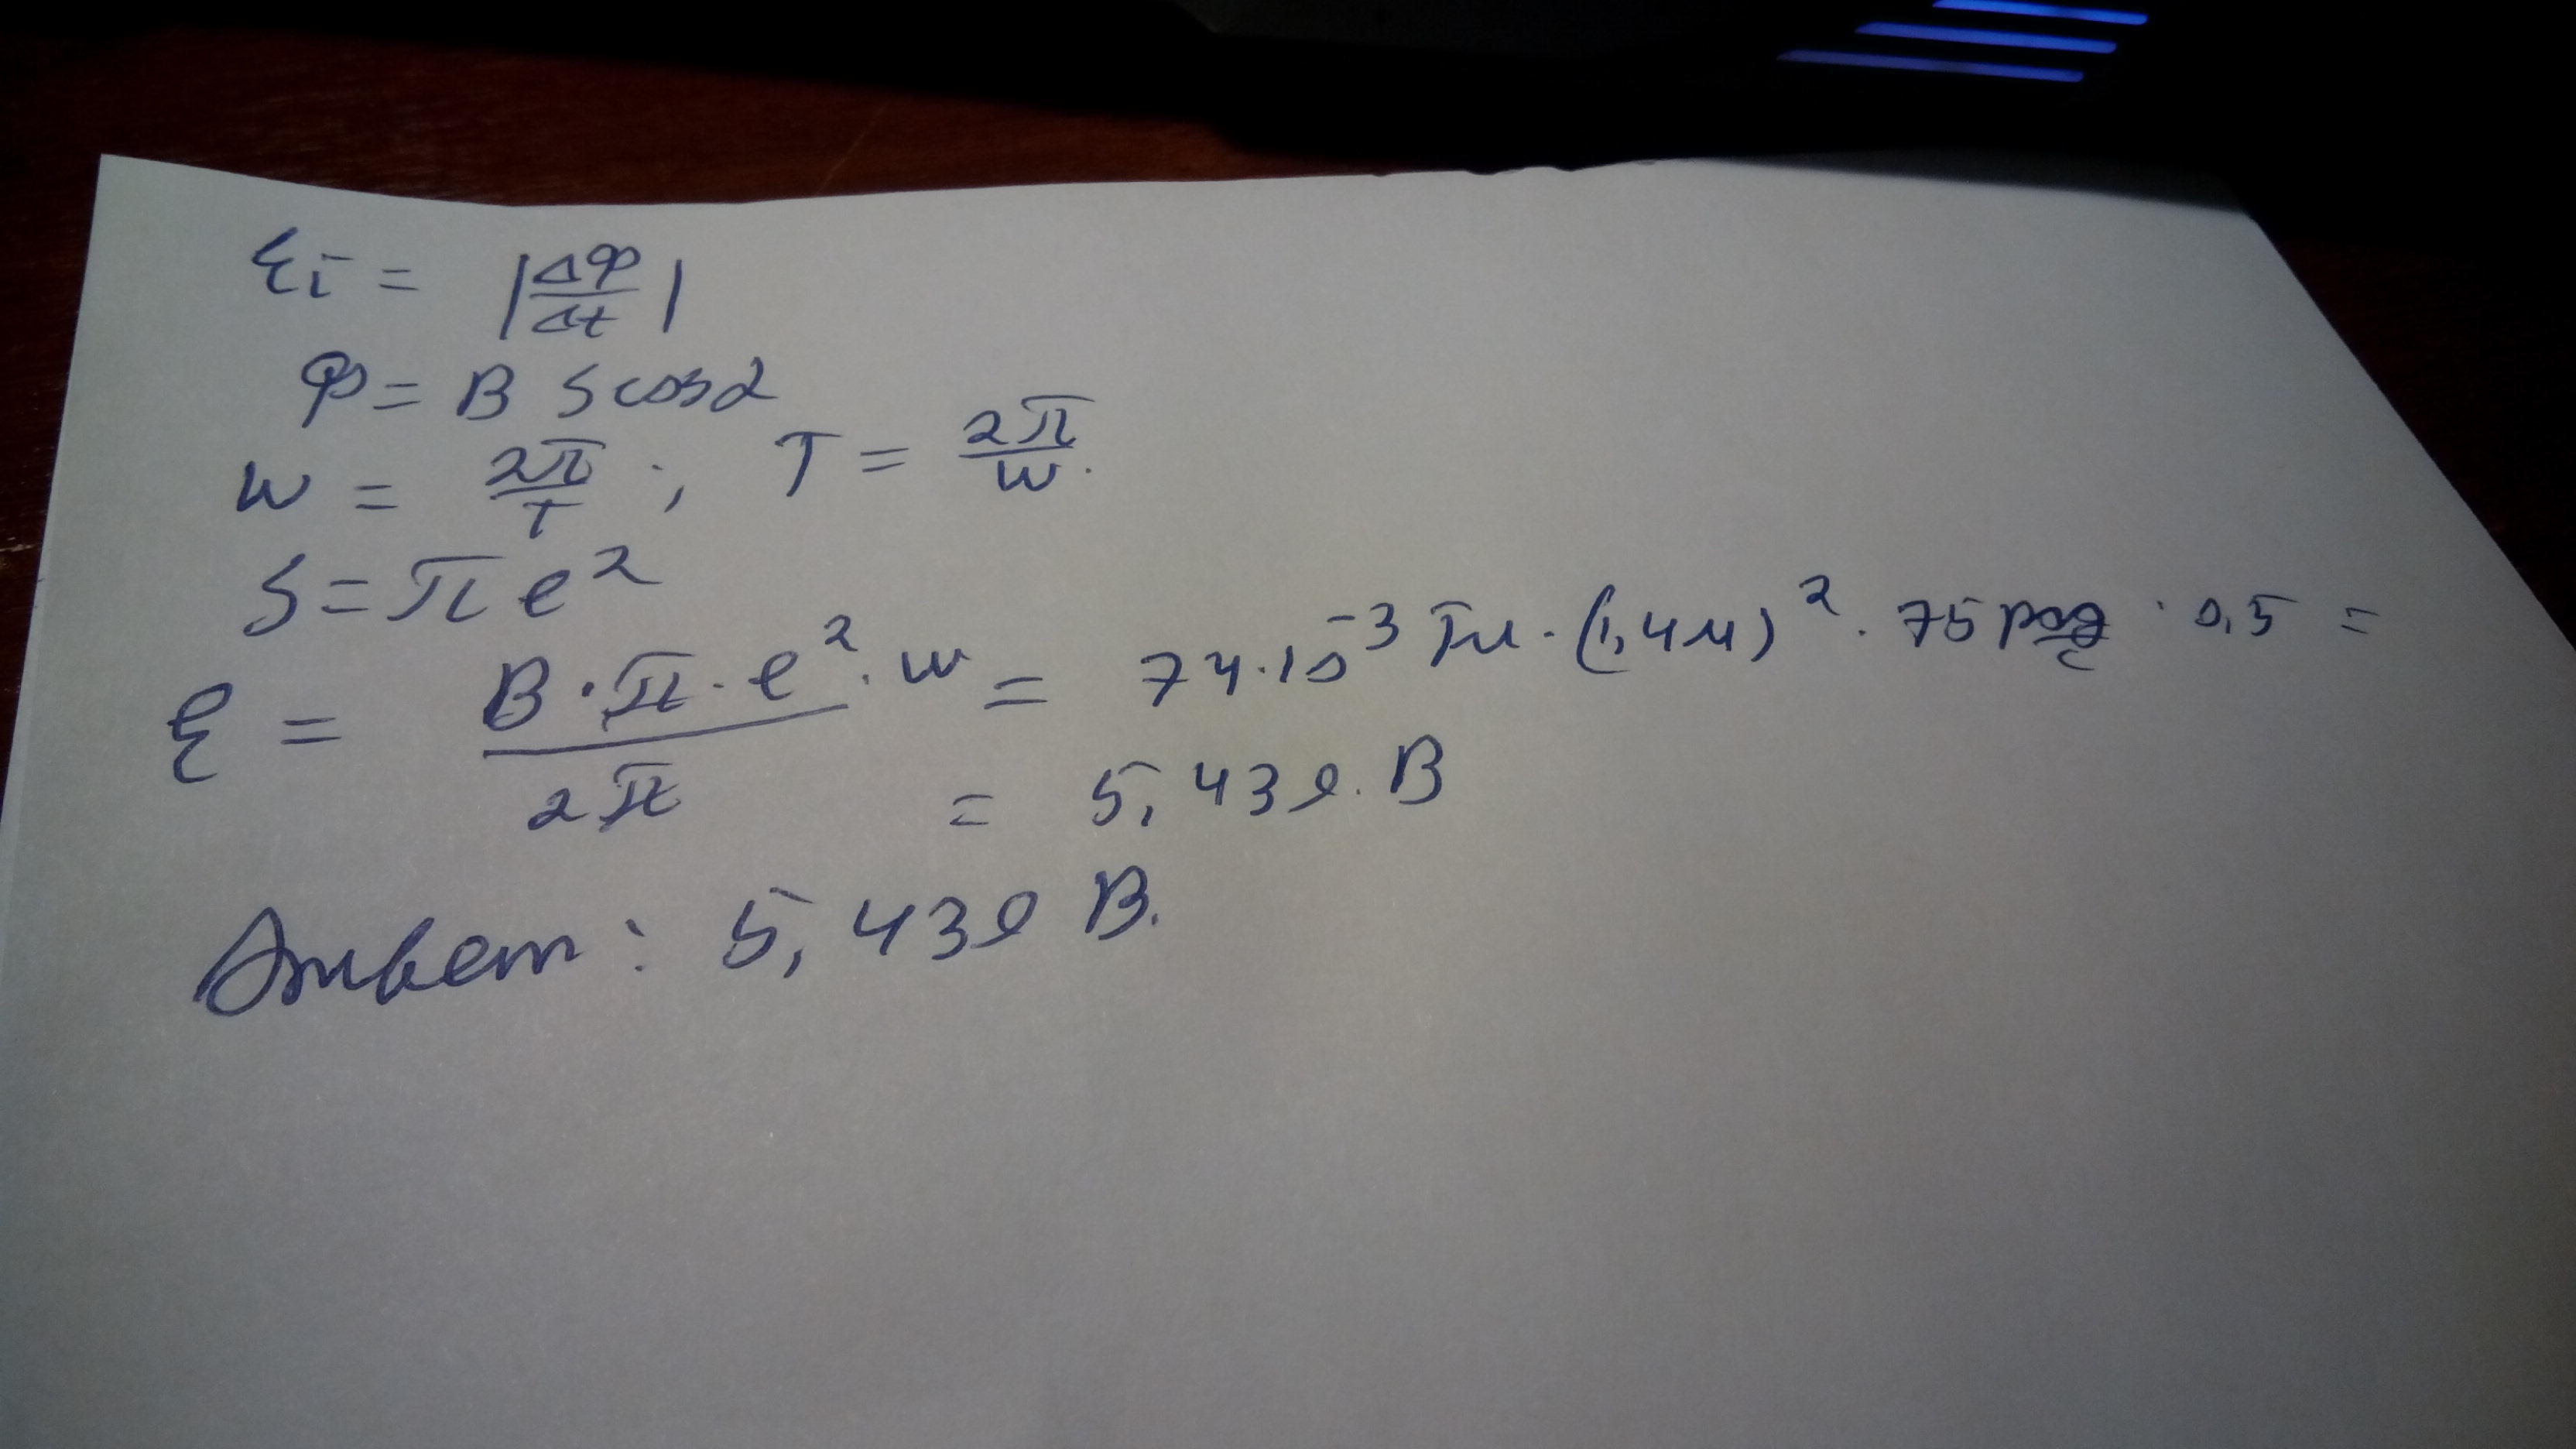 Ɛi = |ΔФ/Δt|
Ф = B S cos α
w = 2π/T ; T = 2π/w.
S = π l²
Ɛ = B · π · l² · w / 2π = 74 · 10⁻³ Тл · (1,4 м)² · 75 рад/с · 0,5 =
= 5,439 В
Ответ: 5,439 В.